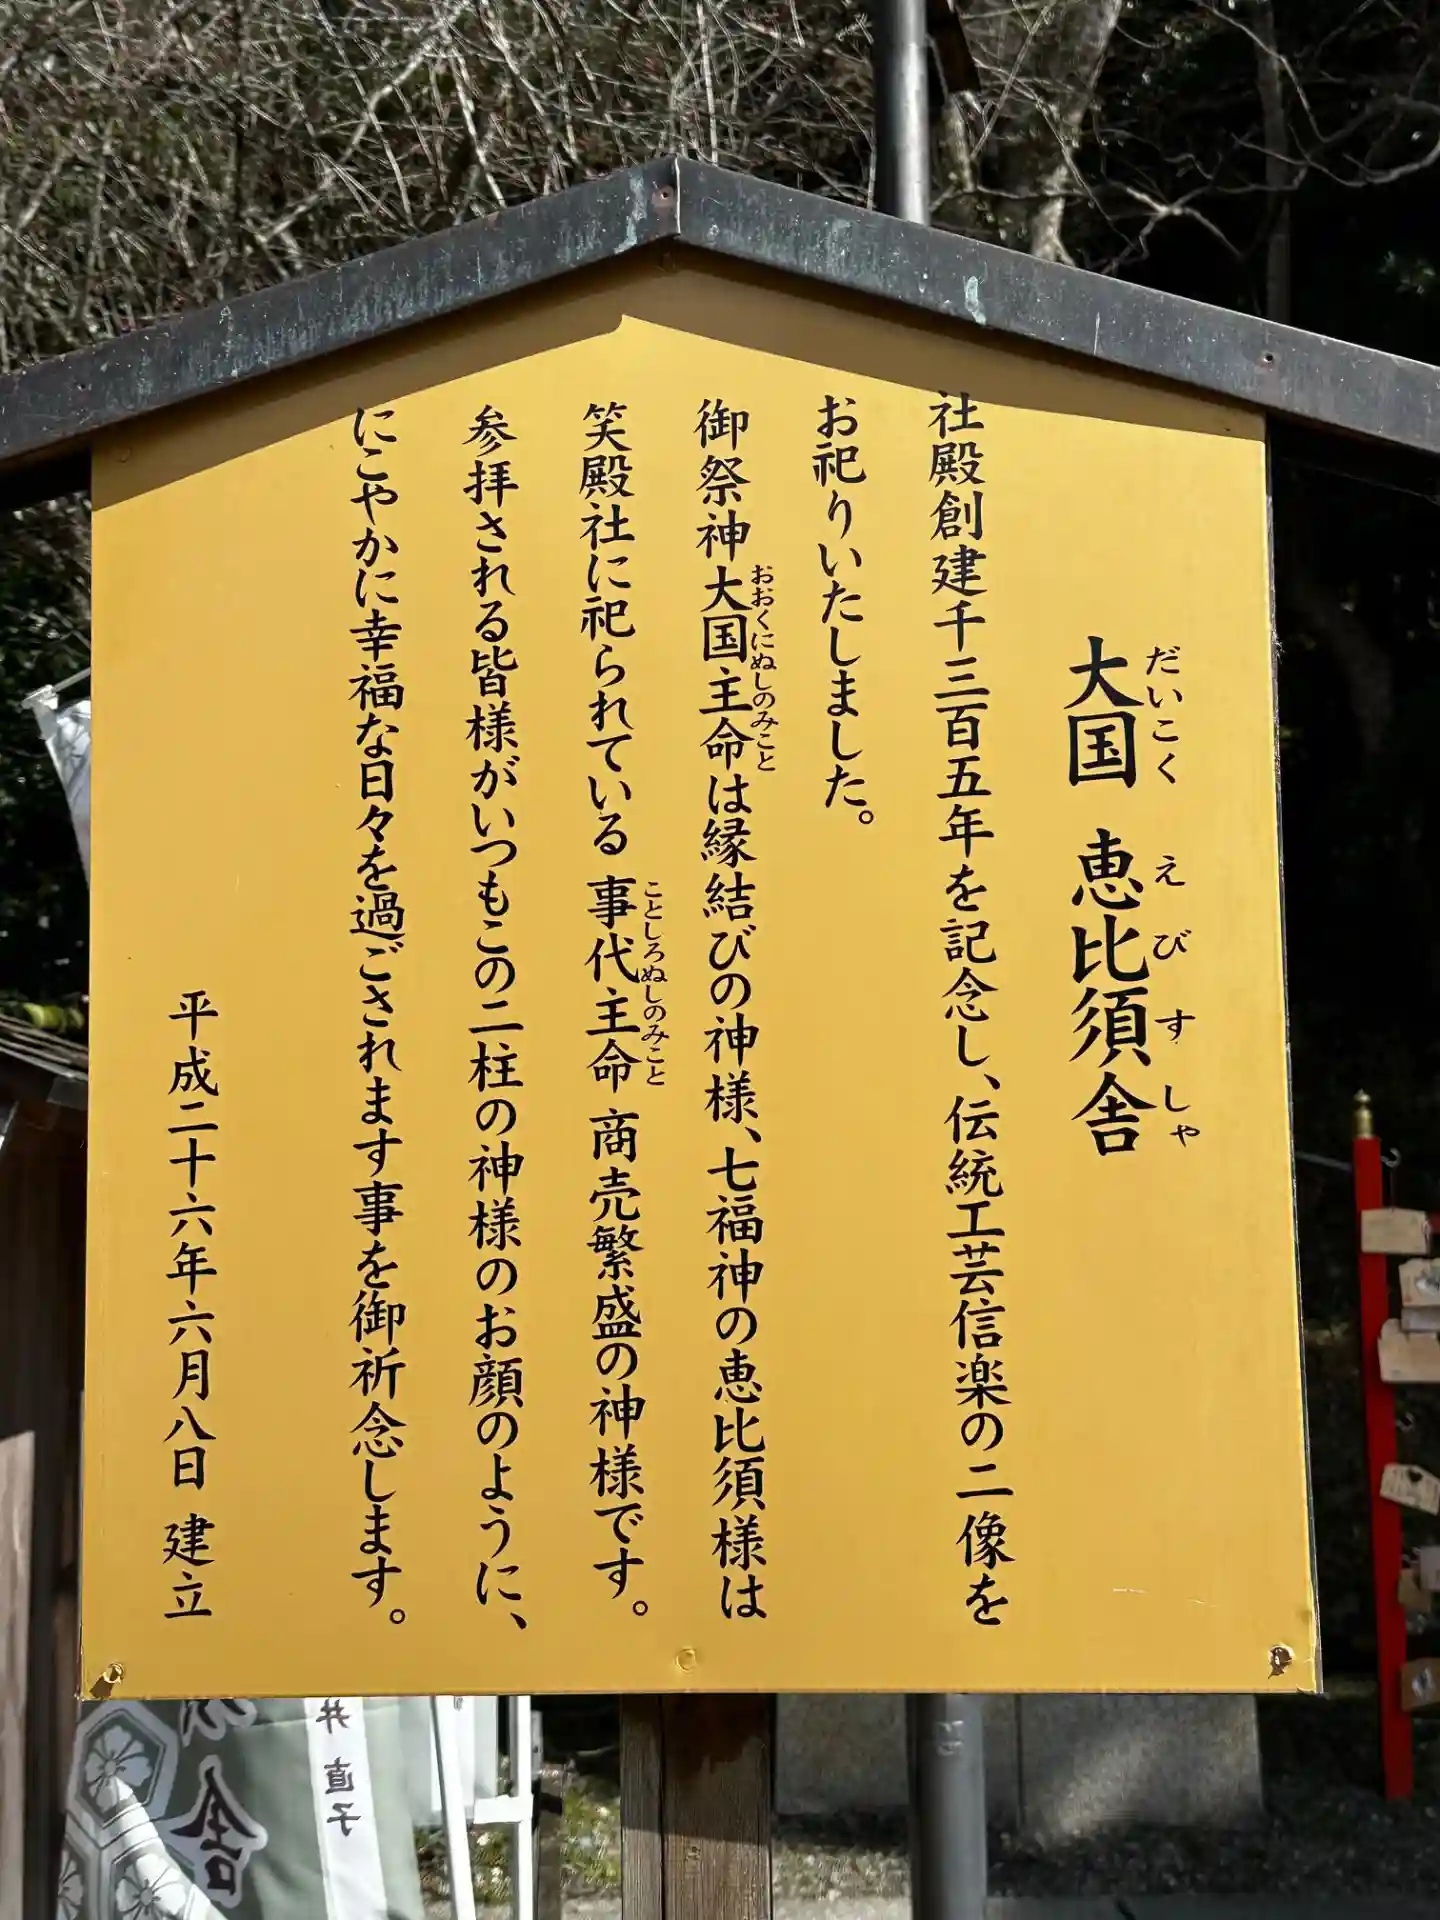 大国 恵比須舎
だいこく えびすしゃ
社殿創建千三百五年を記念し、伝統工芸信楽の二像を
お祀りいたしました。
御祭神大国主命は縁結びの神様、七福神の恵比須様は
おおくにぬしのみこと
笑殿社に祀られている 事代主命 商売繁盛の神様です。
ことしろぬしのみこと
参拝される皆様がいつもこの二柱の神様のお顔のように、
にこやかに幸福な日々を過ごされます事を御祈念します。
平成二十六年六月八日 建立
井 直子
舎